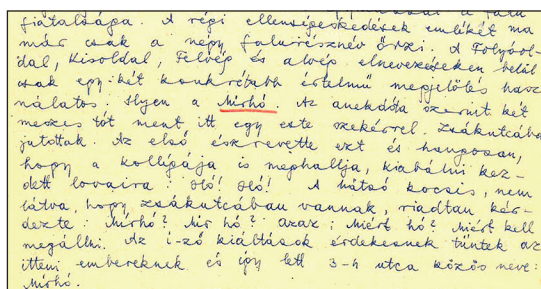 fiatalsága. A régi ellenségeskedések emlékét ma
már csak a négy falurésznév őrzi. A Folyóol-
dal, Kisoldal, Felvég és alvég elnevezéseken belül
csak egy-két konkrétabb értelmű megjelölés hasz
nálatos. Ilyen a Mirhó. Az anekdóta szerint két
meszes tót ment itt egy este szekérrel. Zsákutcába
jutottak. Az első észrevette ezt és hangosan,
hogy a kollégája is meghallja, kiabálni kez-
dett lovaira: Hó! Hó! A hátsó kocsis, nem
látva, hogy zsákutcában vannak, riadtan kér-
dezte: Mirhó? Mir hó? azaz: Miért hó? Miért kell
megállni. Az i-ző kiáltások érdekesnek tűntek az
itteni embereknek és így lett 3-4 utca közös neve:
Mirhó.